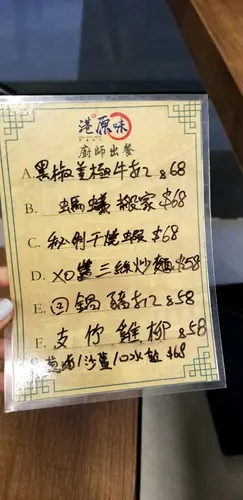 港原味
廚師出餐
A. 黑椒薑極牛扒 $68
B. 螞蟻搬家 $68
C. 秘制干燒蝦 $68
D. XO醬三絲炒麵 $58
E. 回鍋豬扒 $58
F. 支竹雞柳 $58
/沙薑/口水 $68